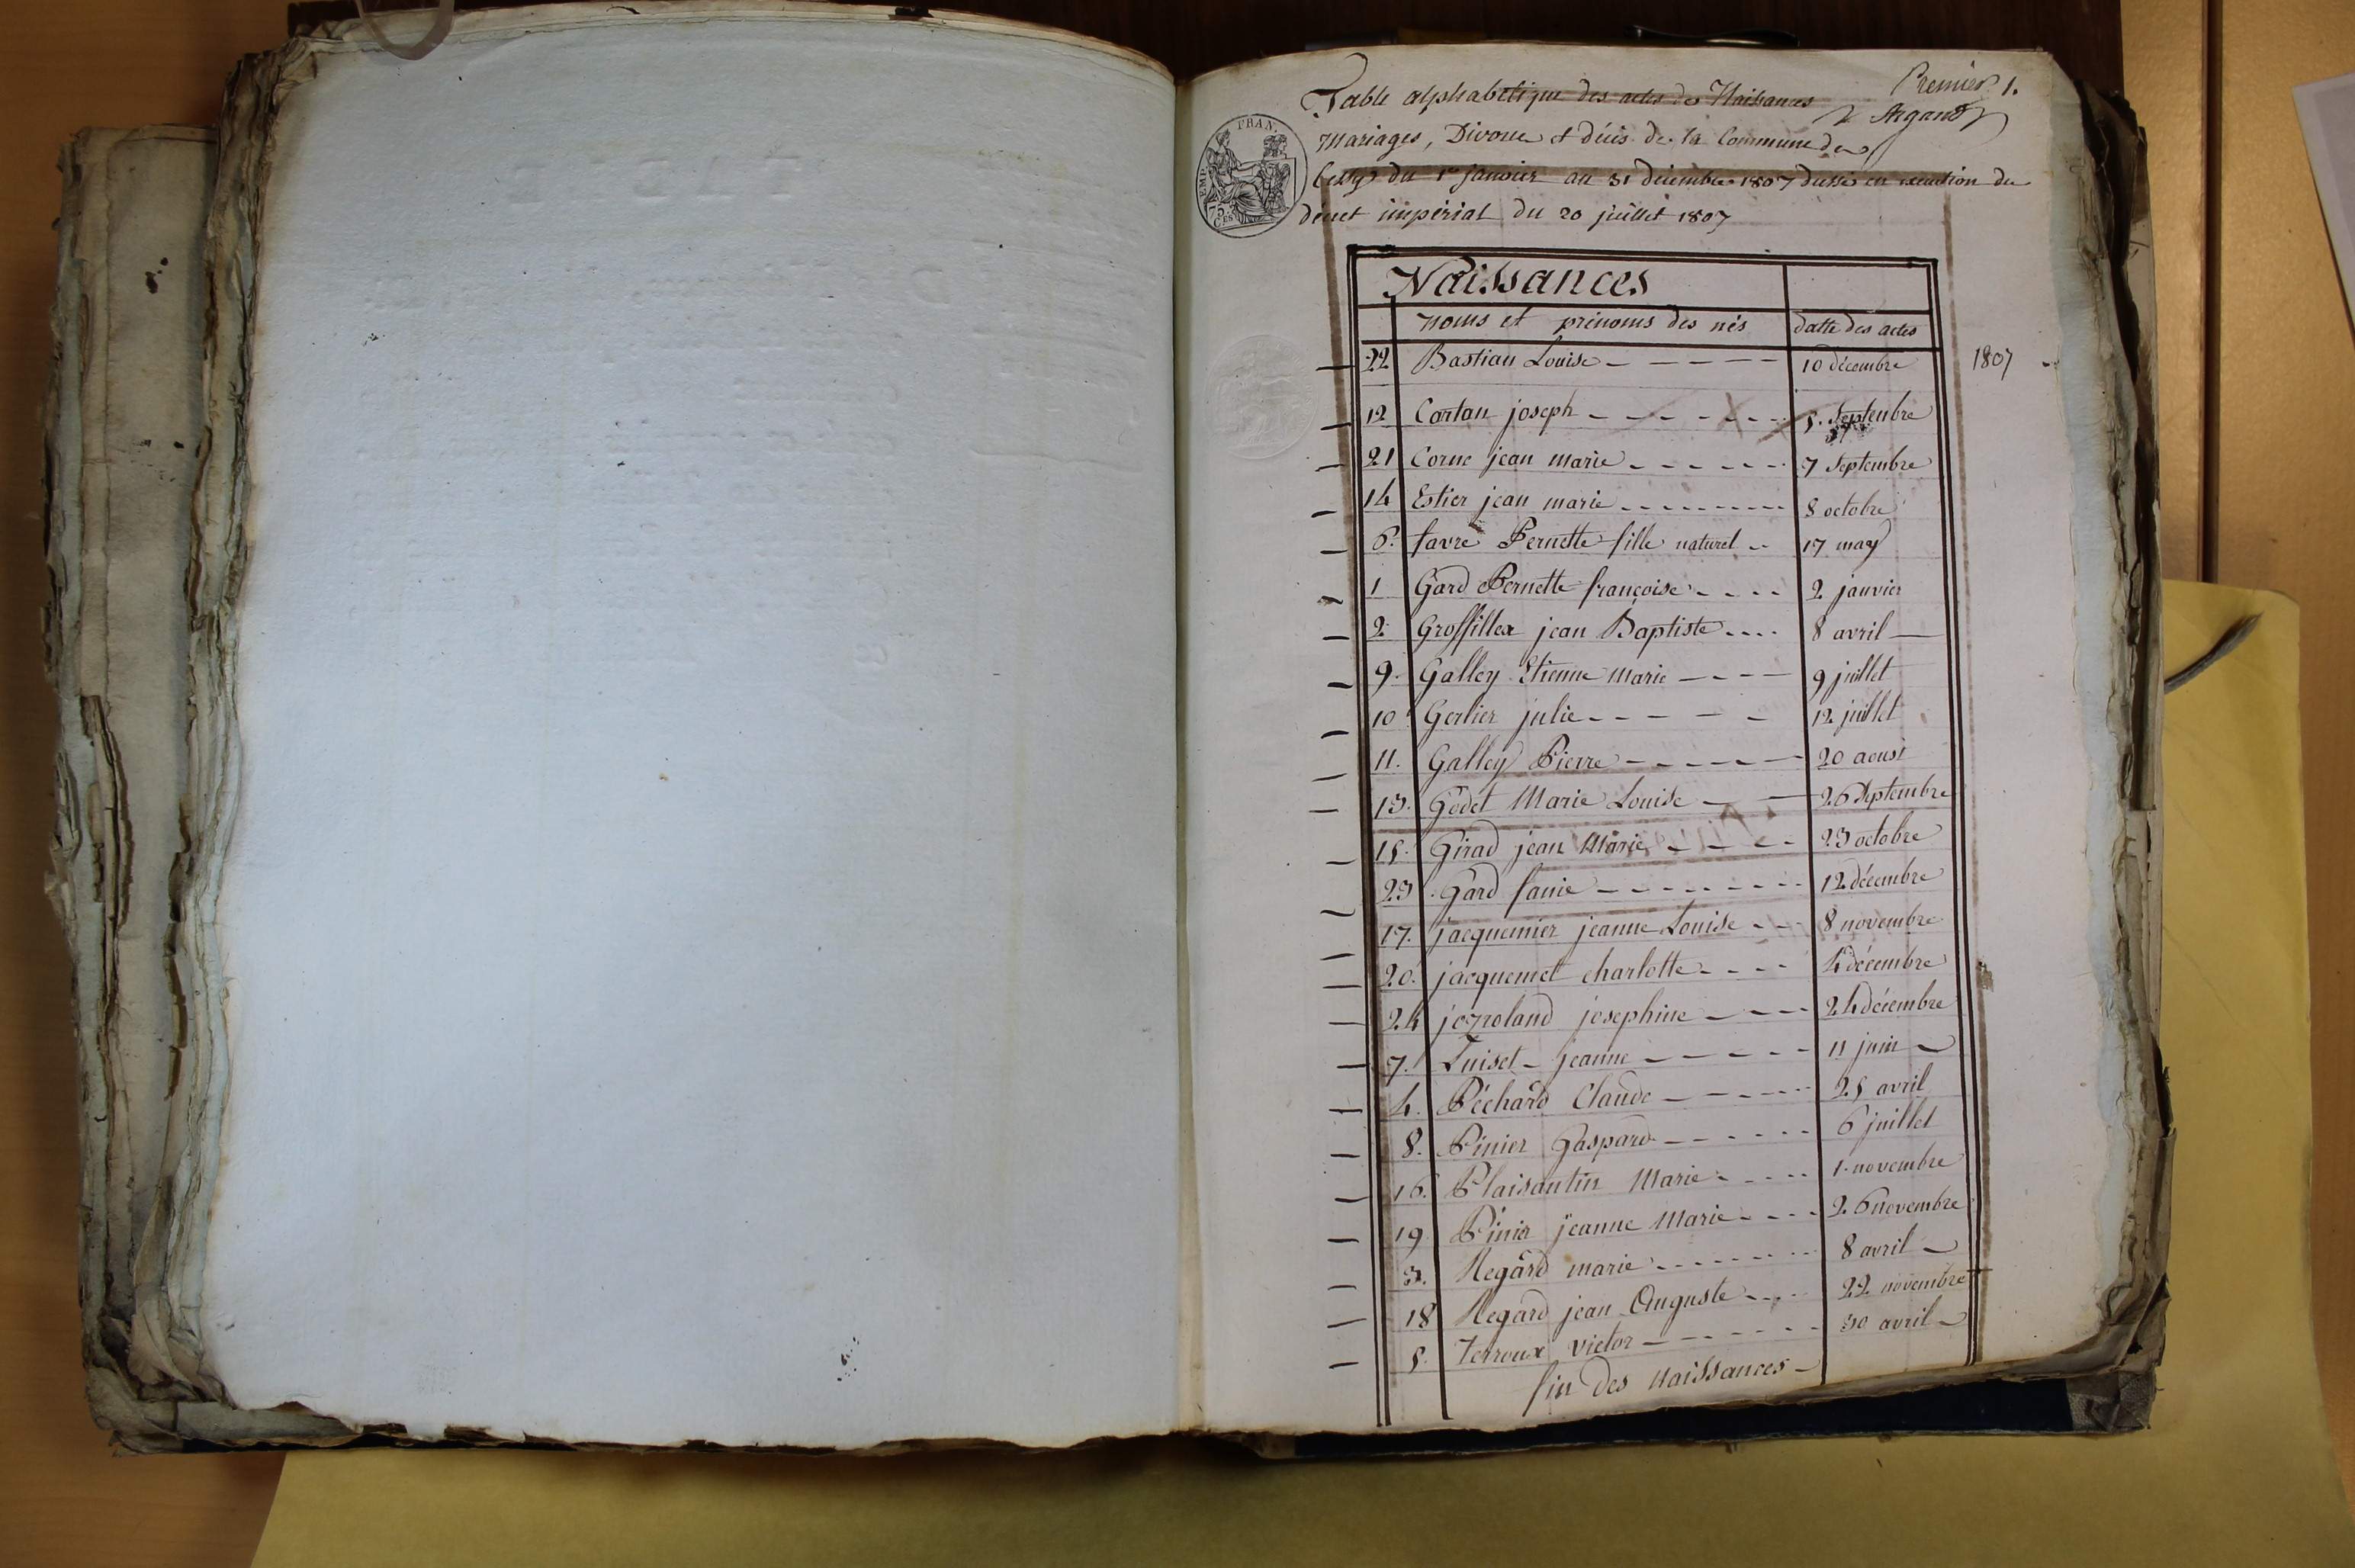 Premier 1.
Argand
Table alphabétique des actes de Naissances
Mariages, Divorce et décès de la Commune de
Cessy du 1er janvier au 31 décembre 1807 dressé en execution du
décret impérial du 20 juillet 1807
EMP. FRAN.
75
CES
Naissances
noms et prénoms des nés datte des actes
22 Bastian Louise 10 décembre 1807
12 Cartan joseph 5. Septembre
21 Corne jean marie 7 Septembre
14 Estier jean marie 8 octobre
6. favre Pernette fille naturel 17 may
1 Gard Pernette françoise 2 janvier
2 Grosfillex jean Baptiste 8 avril
9. Galley Etienne Marie 9 juillet
10 Gerlier julie 12 juillet
11. Galley Pierre 20 aoust
13. Godet Marie Louise 26 Septembre
15. Girad jean Marie 23 octobre
23 Gard fanie 12 décembre
17. jacquemier jeanne Louise 8 novembre
20. jacquemet charlotte 4 décembre
24 josroland josephine 24 décembre
7. Tuiset jeanne 11 juin
4. Péchard Claude 25 avril
8. Pinier Gaspard 6 juillet
16. Plaisantin Marie 1. novembre
19 Pinier jeanne Marie 26 novembre
3. Regard marie 8 avril
18 Regard jean Auguste 22 novembre
5. Terroux victor 30 avril
fin des naissances